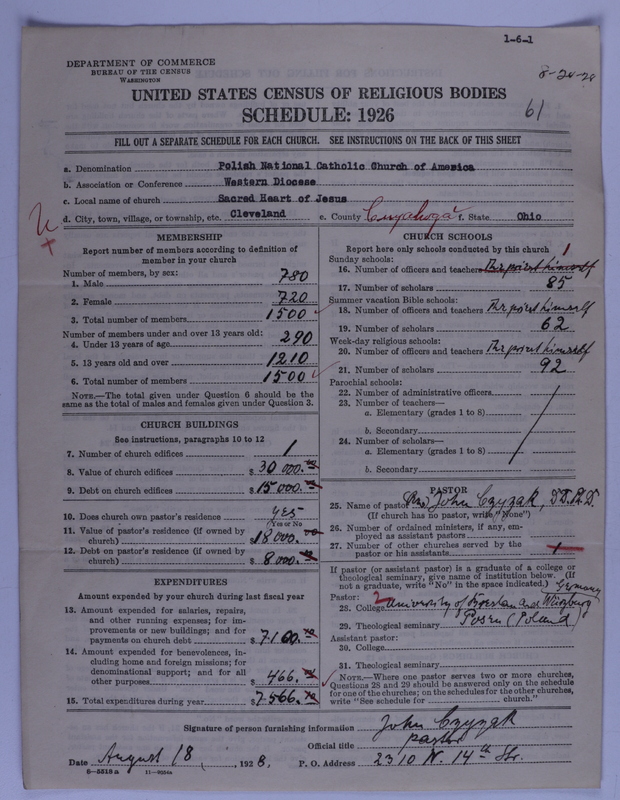 1-6-1
DEPARTMENT OF COMMERCE
BUREAU OF THE CENSUS
WASHINGTON
8-24-28
UNITED STATES CENSUS OF RELIGIOUS BODIES
SCHEDULE: 1926
61
FILL OUT A SEPARATE SCHEDULE FOR EACH CHURCH. SEE INSTRUCTIONS ON THE BACK OF THIS SHEET
a. Denomination Polish National Catholic Church of America
b. Association or Conference Western Diocese
c. Local name of church Sacred Heart of Jesus
d. City, town, village, or township, etc. Cleveland e. County Cuyahoga f. State Ohio
MEMBERSHIP
Report number of members according to definition of
member in your church
Number of members, by sex:
1. Male 780
2. Female 720
3. Total number of members 1500
Number of members under and over 13 years old:
4. Under 13 years of age 290
5. 13 years old and over 1210
6. Total number of members 1500
NOTE.—The total given under Question 6 should be the
same as the total of males and females given under Question 3.
CHURCH BUILDINGS
See instructions, paragraphs 10 to 12
7. Number of church edifices 1
8. Value of church edifices $ 30 000.
9. Debt on church edifices $ 15 000.
10. Does church own pastor's residence yes
(Yes or No)
11. Value of pastor's residence (if owned by
church) $ 18 000.
12. Debt on pastor's residence (if owned by
church) $ 8 000.
EXPENDITURES
Amount expended by your church during last fiscal year
13. Amount expended for salaries, repairs,
and other running expenses; for im-
provements or new buildings; and for
payments on church debt $ 7100.
14. Amount expended for benevolences, in-
cluding home and foreign missions; for
denominational support; and for all
other purposes $ 466.
15. Total expenditures during year $ 7566.
CHURCH SCHOOLS
Report here only schools conducted by this church
Sunday schools: 1
16. Number of officers and teachers The priest himself
17. Number of scholars 85
Summer vacation Bible schools:
18. Number of officers and teachers The priest himself
19. Number of scholars 62
Week-day religious schools:
20. Number of officers and teachers The priest himself
21. Number of scholars 92
Parochial schools:
22. Number of administrative officers
23. Number of teachers—
a. Elementary (grades 1 to 8)
b. Secondary
24. Number of scholars—
a. Elementary (grades 1 to 8)
b. Secondary
PASTOR
25. Name of pastor Rev. John Czyzak,
(If church has no pastor, write "None")
26. Number of ordained ministers, if any, em-
ployed as assistant pastors
27. Number of other churches served by the
pastor or his assistants 1
If pastor (or assistant pastor) is a graduate of a college or
theological seminary, give name of institution below. (If
not a graduate, write "No" in the space indicated.) Germany
Pastor: 2
28. College University of and Würzburg
29. Theological seminary Posen (Poland)
Assistant pastor:
30. College
31. Theological seminary
NOTE.—Where one pastor serves two or more churches,
Questions 28 and 29 should be answered only on the schedule
for one of the churches; on the schedules for the other churches,
write "See schedule for church."
Signature of person furnishing information John Czyzak
Official title pastor
Date August 18, 1928. P. O. Address 2310 W. 14th Str.